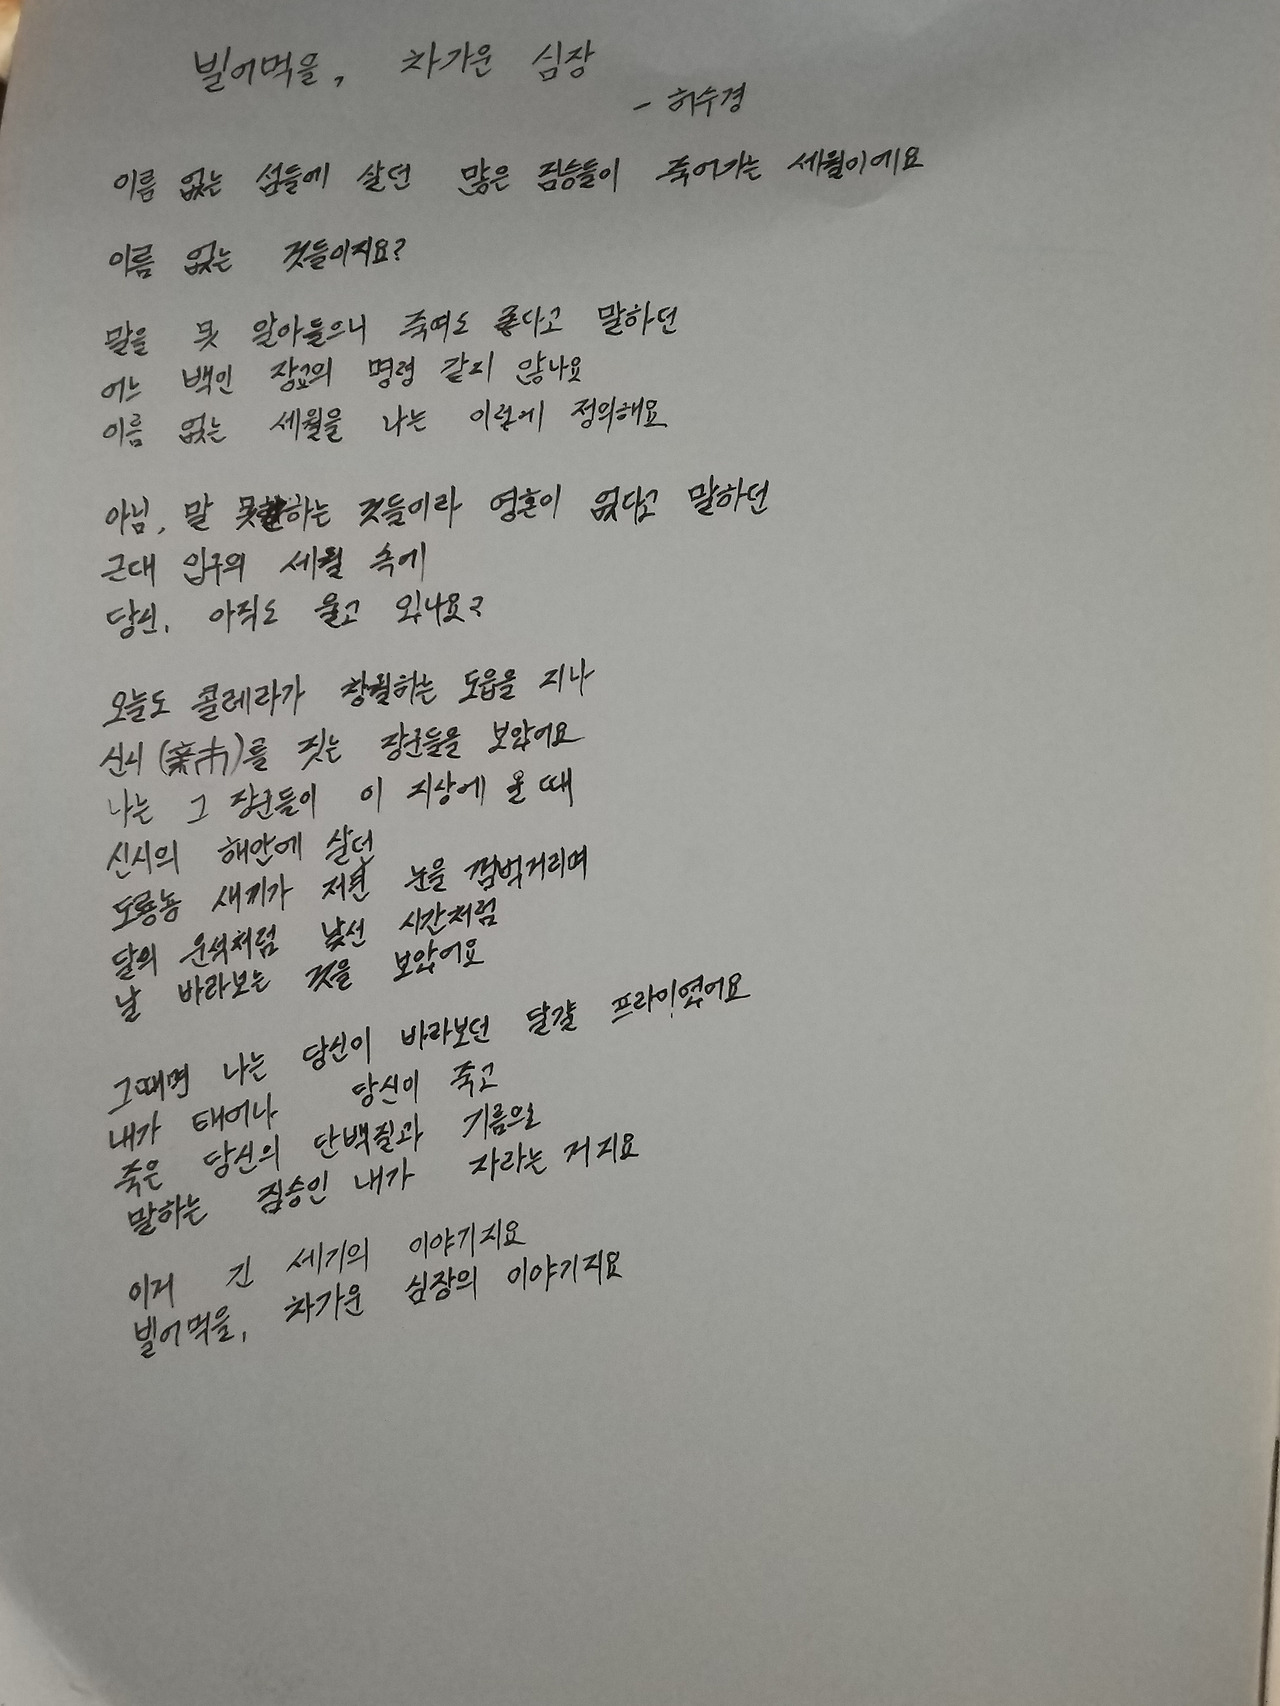 빌어먹을, 차가운 심장
- 허수경
이름 없는 섬들에 살던 많은 짐승들이 죽어가는 세월이에요
이름 없는 것들이지요?
말을 못 알아들으니 죽여도 좋다고 말하던
어느 백인 장교의 명령 같지 않나요
이름 없는 세월을 나는 이렇게 정의해요
아님, 말 못하는 것들이라 영혼이 없다고 말하던
근대 입구의 세월 속에
당신, 아직도 울고 있나요?
오늘도 콜레라가 창궐하는 도읍을 지나
신시(新市)를 짓는 장군들을 보았어요
나는 그 장군들이 이 지상에 올 때
신시의 해안에 살던
도롱뇽 새끼가 저편 눈을 껌벅거리며
달의 운석처럼 낯선 시간처럼
날 바라보는 것을 보았어요
그때면 나는 당신이 바라보던 달걀 프라이였어요
내가 태어나 당신이 죽고
죽은 당신의 단백질과 기름으로
말하는 짐승인 내가 자라는 거지요
이거 긴 세기의 이야기지요
빌어먹을, 차가운 심장의 이야기지요